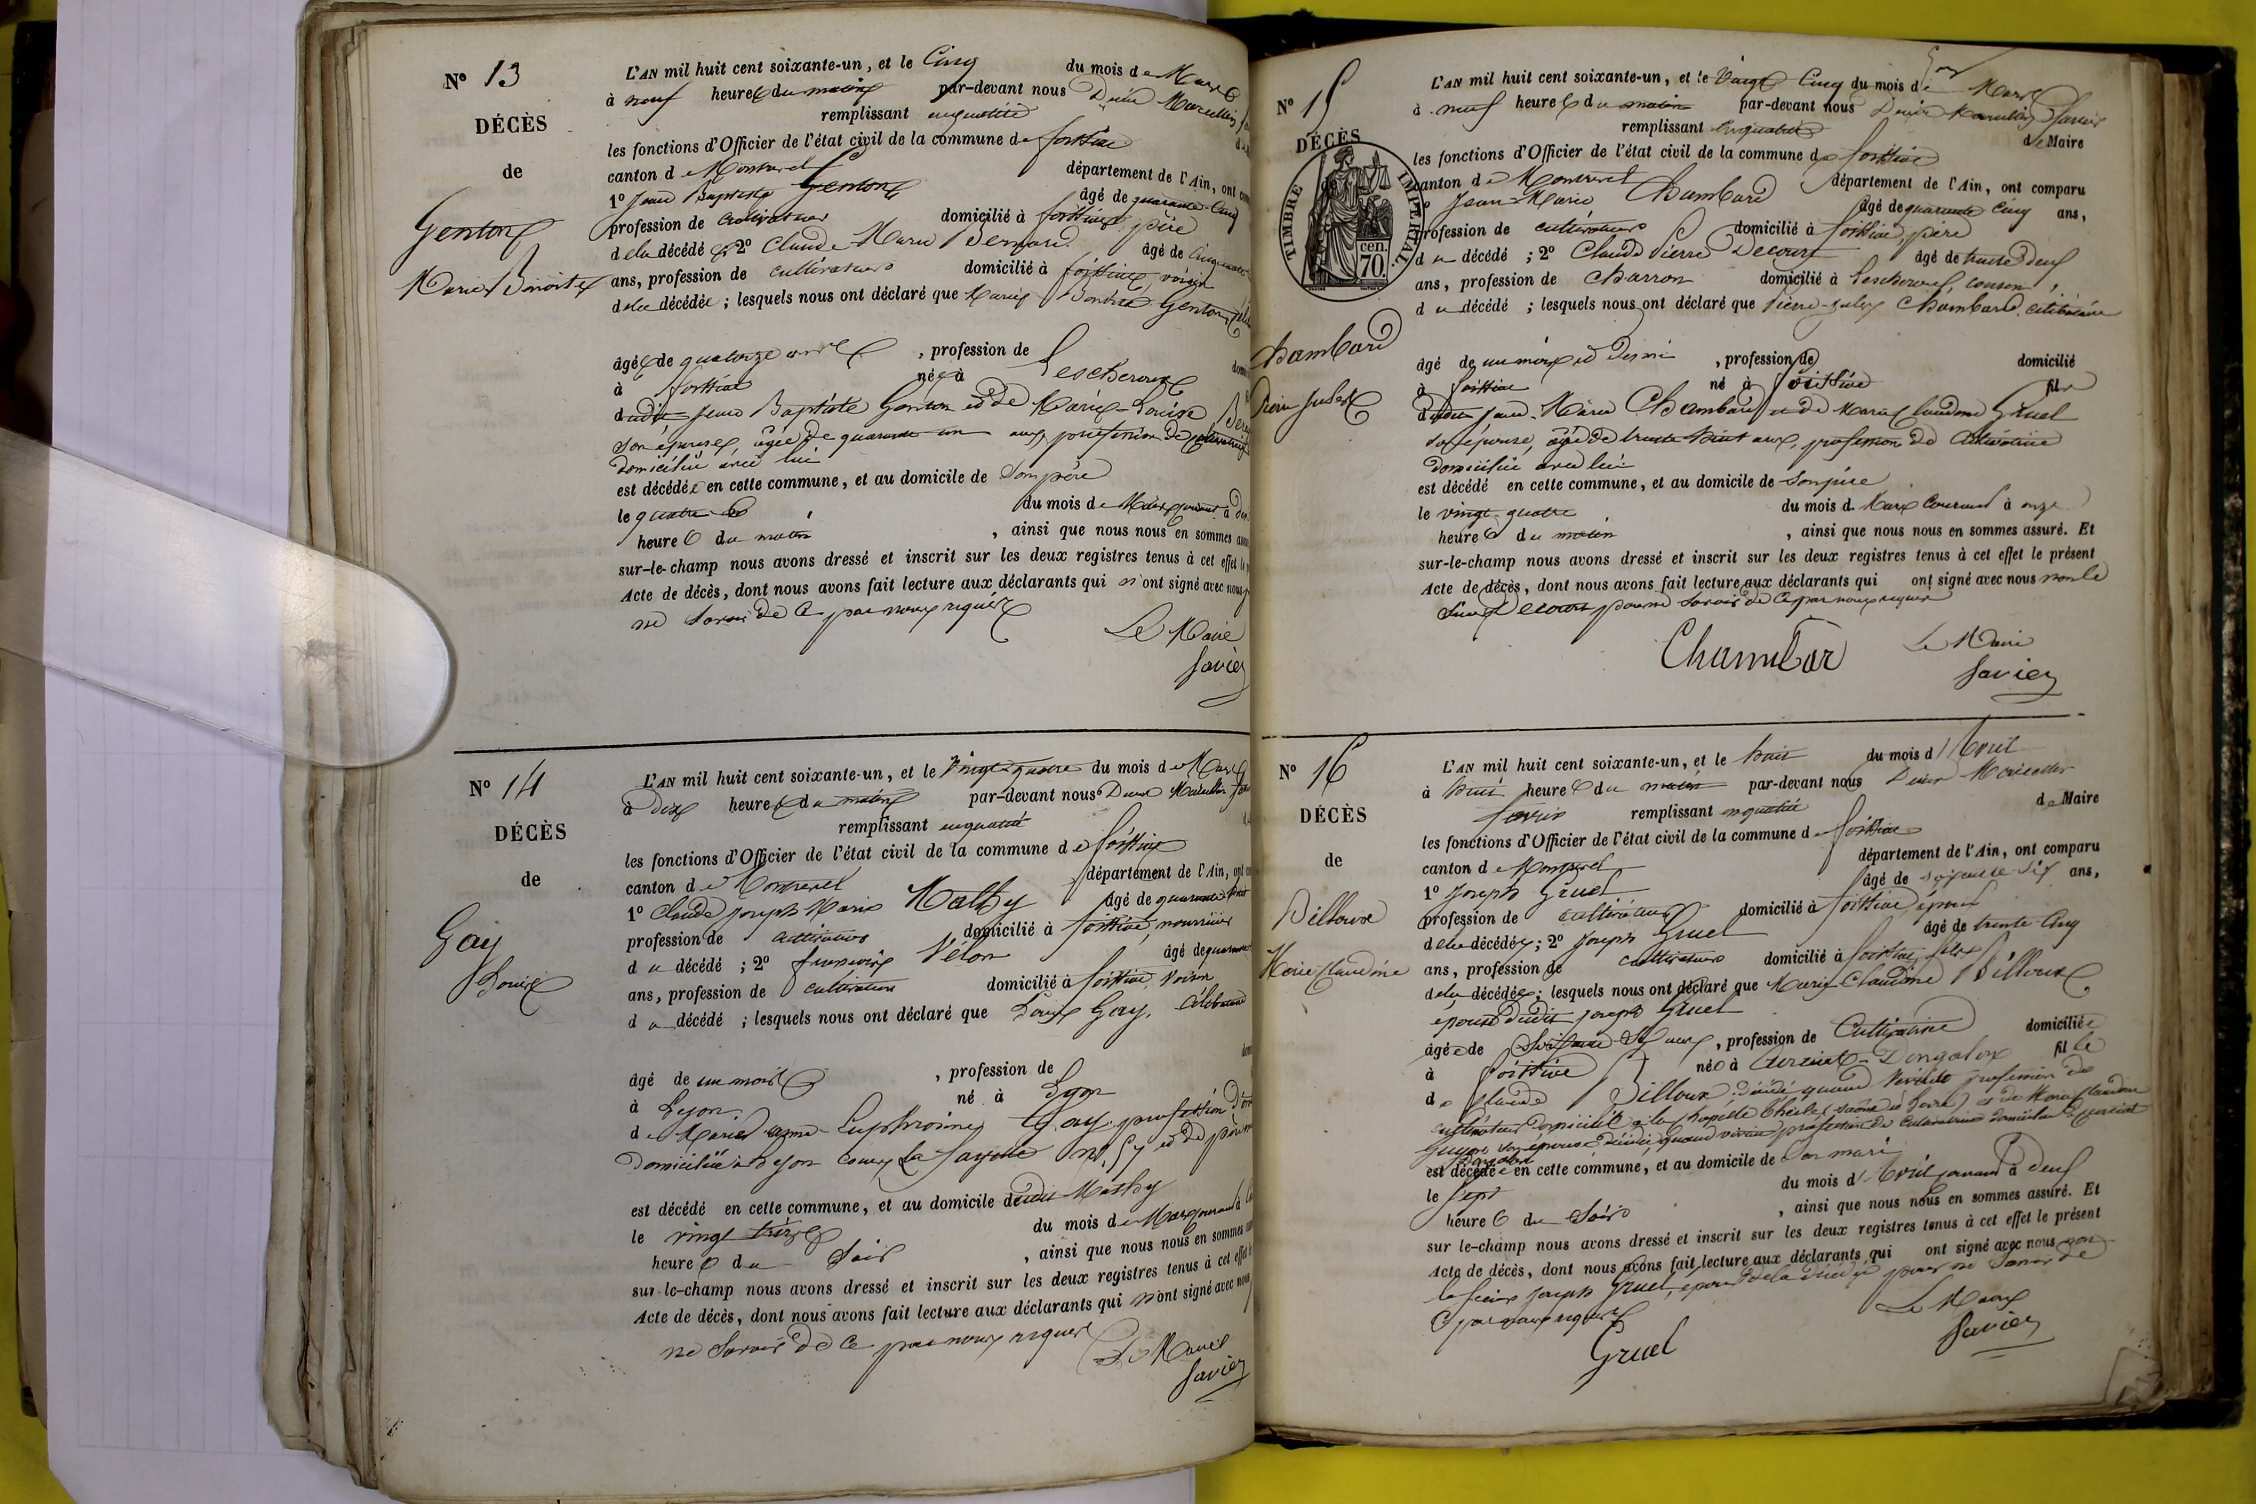 N° 13
DÉCÈS
de
Genton
Marie Benoite
L'AN mil huit cent soixante-un, et le Cinq du mois de Mars
à neuf heures du matin par-devant nous
remplissant en qualité
les fonctions d'Officier de l'état civil de la commune de foissiat
canton de Montrevel département de l'Ain, ont
1° Jean Baptiste Genton âgé de quarante-cinq
profession de cultivateur domicilié à foissiat, père
de la décédée 2° Claude Marie âgé de
ans, profession de cultivateur domicilié à foissiat, voisin
de la décédée ; lesquels nous ont déclaré que Marie Benoite Genton
âgée de quatorze ans , profession de
à foissiat née à Lescheroux
dudit Jean Baptiste Genton et de Marie-Louise
son épouse, âgée de quarante un ans, profession de
domiciliée avec lui
est décédée en cette commune, et au domicile de son père
le quatre du mois de Mars courant à
heures du matin , ainsi que nous nous en sommes
sur-le-champ nous avons dressé et inscrit sur les deux registres tenus à cet effet le
Acte de décès, dont nous avons fait lecture aux déclarants qui n'ont signé avec nous
ne savoir de ce par nous requis
Le Maire
Savier
N° 14
DÉCÈS
de
Gay
Louis
L'AN mil huit cent soixante-un, et le Vingt-quatre du mois de Mars
à dix heures du matin par-devant nous
remplissant en qualité
les fonctions d'Officier de l'état civil de la commune de foissiat
canton de Montrevel département de l'Ain, ont
1° Claude Joseph Marie Mathy âgé de quarante huit
profession de cultivateur domicilié à foissiat, nourricier
du décédé ; 2° françois Vélon âgé de quarante
ans, profession de cultivateur domicilié à foissiat, voisin
du décédé ; lesquels nous ont déclaré que Louis Gay, célibataire
âgé de un mois , profession de
à Lyon né à Lyon
de Marie Euphroisine Gay, profession
domiciliée à Lyon cours La fayette N° 57 et de père
est décédé en cette commune, et au domicile dudit Mathy
le vingt trois du mois de Mars courant à
heures du soir , ainsi que nous nous en sommes
sur-le-champ nous avons dressé et inscrit sur les deux registres tenus à cet effet
Acte de décès, dont nous avons fait lecture aux déclarants qui n'ont signé avec nous
ne savoir de ce par nous requis
Le Maire
Savier
N° 15
DÉCÈS
de
TIMBRE IMPÉRIAL
cen.
70.
Chambard
Pierre Jules
L'AN mil huit cent soixante-un, et le Vingt Cinq du mois de Mars
à neuf heures du matin par-devant nous
remplissant en qualité de Maire
les fonctions d'Officier de l'état civil de la commune de foissiat
canton de Montrevel département de l'Ain, ont comparu
1° Jean-Marie Chambard âgé de quarante cinq ans,
profession de cultivateur domicilié à foissiat, père
du décédé ; 2° Claude Pierre Decourt âgé de trente deux
ans, profession de charron domicilié à Lescheroux, cousin
du décédé ; lesquels nous ont déclaré que Pierre-Jules Chambard, célibataire
âgé de un mois et demi , profession de domicilié
à foissiat né à foissiat fils
dudit Jean-Marie Chambard et de Marie Claudine Gruel
son épouse, âgée de trente huit ans, profession de cultivatrice
domiciliée avec lui
est décédé en cette commune, et au domicile de son père
le vingt-quatre du mois de Mars courant à onze
heures du matin , ainsi que nous nous en sommes assuré. Et
sur-le-champ nous avons dressé et inscrit sur les deux registres tenus à cet effet le présent
Acte de décès, dont nous avons fait lecture aux déclarants qui ont signé avec nous non le
sieur Decourt pour ne savoir de ce par nous requis
Chambar
Le Maire
Savier
N° 16
DÉCÈS
de
Billoux
Marie Claudine
L'AN mil huit cent soixante-un, et le huit du mois d'Avril
à huit heures du matin par-devant nous
Savier remplissant en qualité de Maire
les fonctions d'Officier de l'état civil de la commune de foissiat
canton de Montrevel département de l'Ain, ont comparu
1° Joseph Gruel âgé de soixante dix ans,
profession de cultivateur domicilié à foissiat, époux
de la décédée ; 2° Joseph Gruel âgé de trente cinq
ans, profession de cultivateur domicilié à foissiat, fils
de la décédée ; lesquels nous ont déclaré que Marie Claudine Billoux
épouse dudit Joseph Gruel
âgée de ans, profession de Cultivatrice domiciliée
à foissiat née à fille
de Claude Billoux, décédé quand vivait profession de
cultivateur domicilié à la chapelle Thècle (saône et Loire) et de Marie Claudine
Guyon son épouse décédée, quand vivait profession de cultivatrice domiciliée à
est décédée en cette commune, et au domicile de son mari
le sept du mois d'Avril courant à deux
heures du soir , ainsi que nous nous en sommes assuré. Et
sur le-champ nous avons dressé et inscrit sur les deux registres tenus à cet effet le présent
Acte de décès, dont nous avons fait lecture aux déclarants qui ont signé avec nous non
le sieur Joseph Gruel, époux de la décédée pour ne savoir de
ce par nous requis
Gruel
Le Maire
Savier